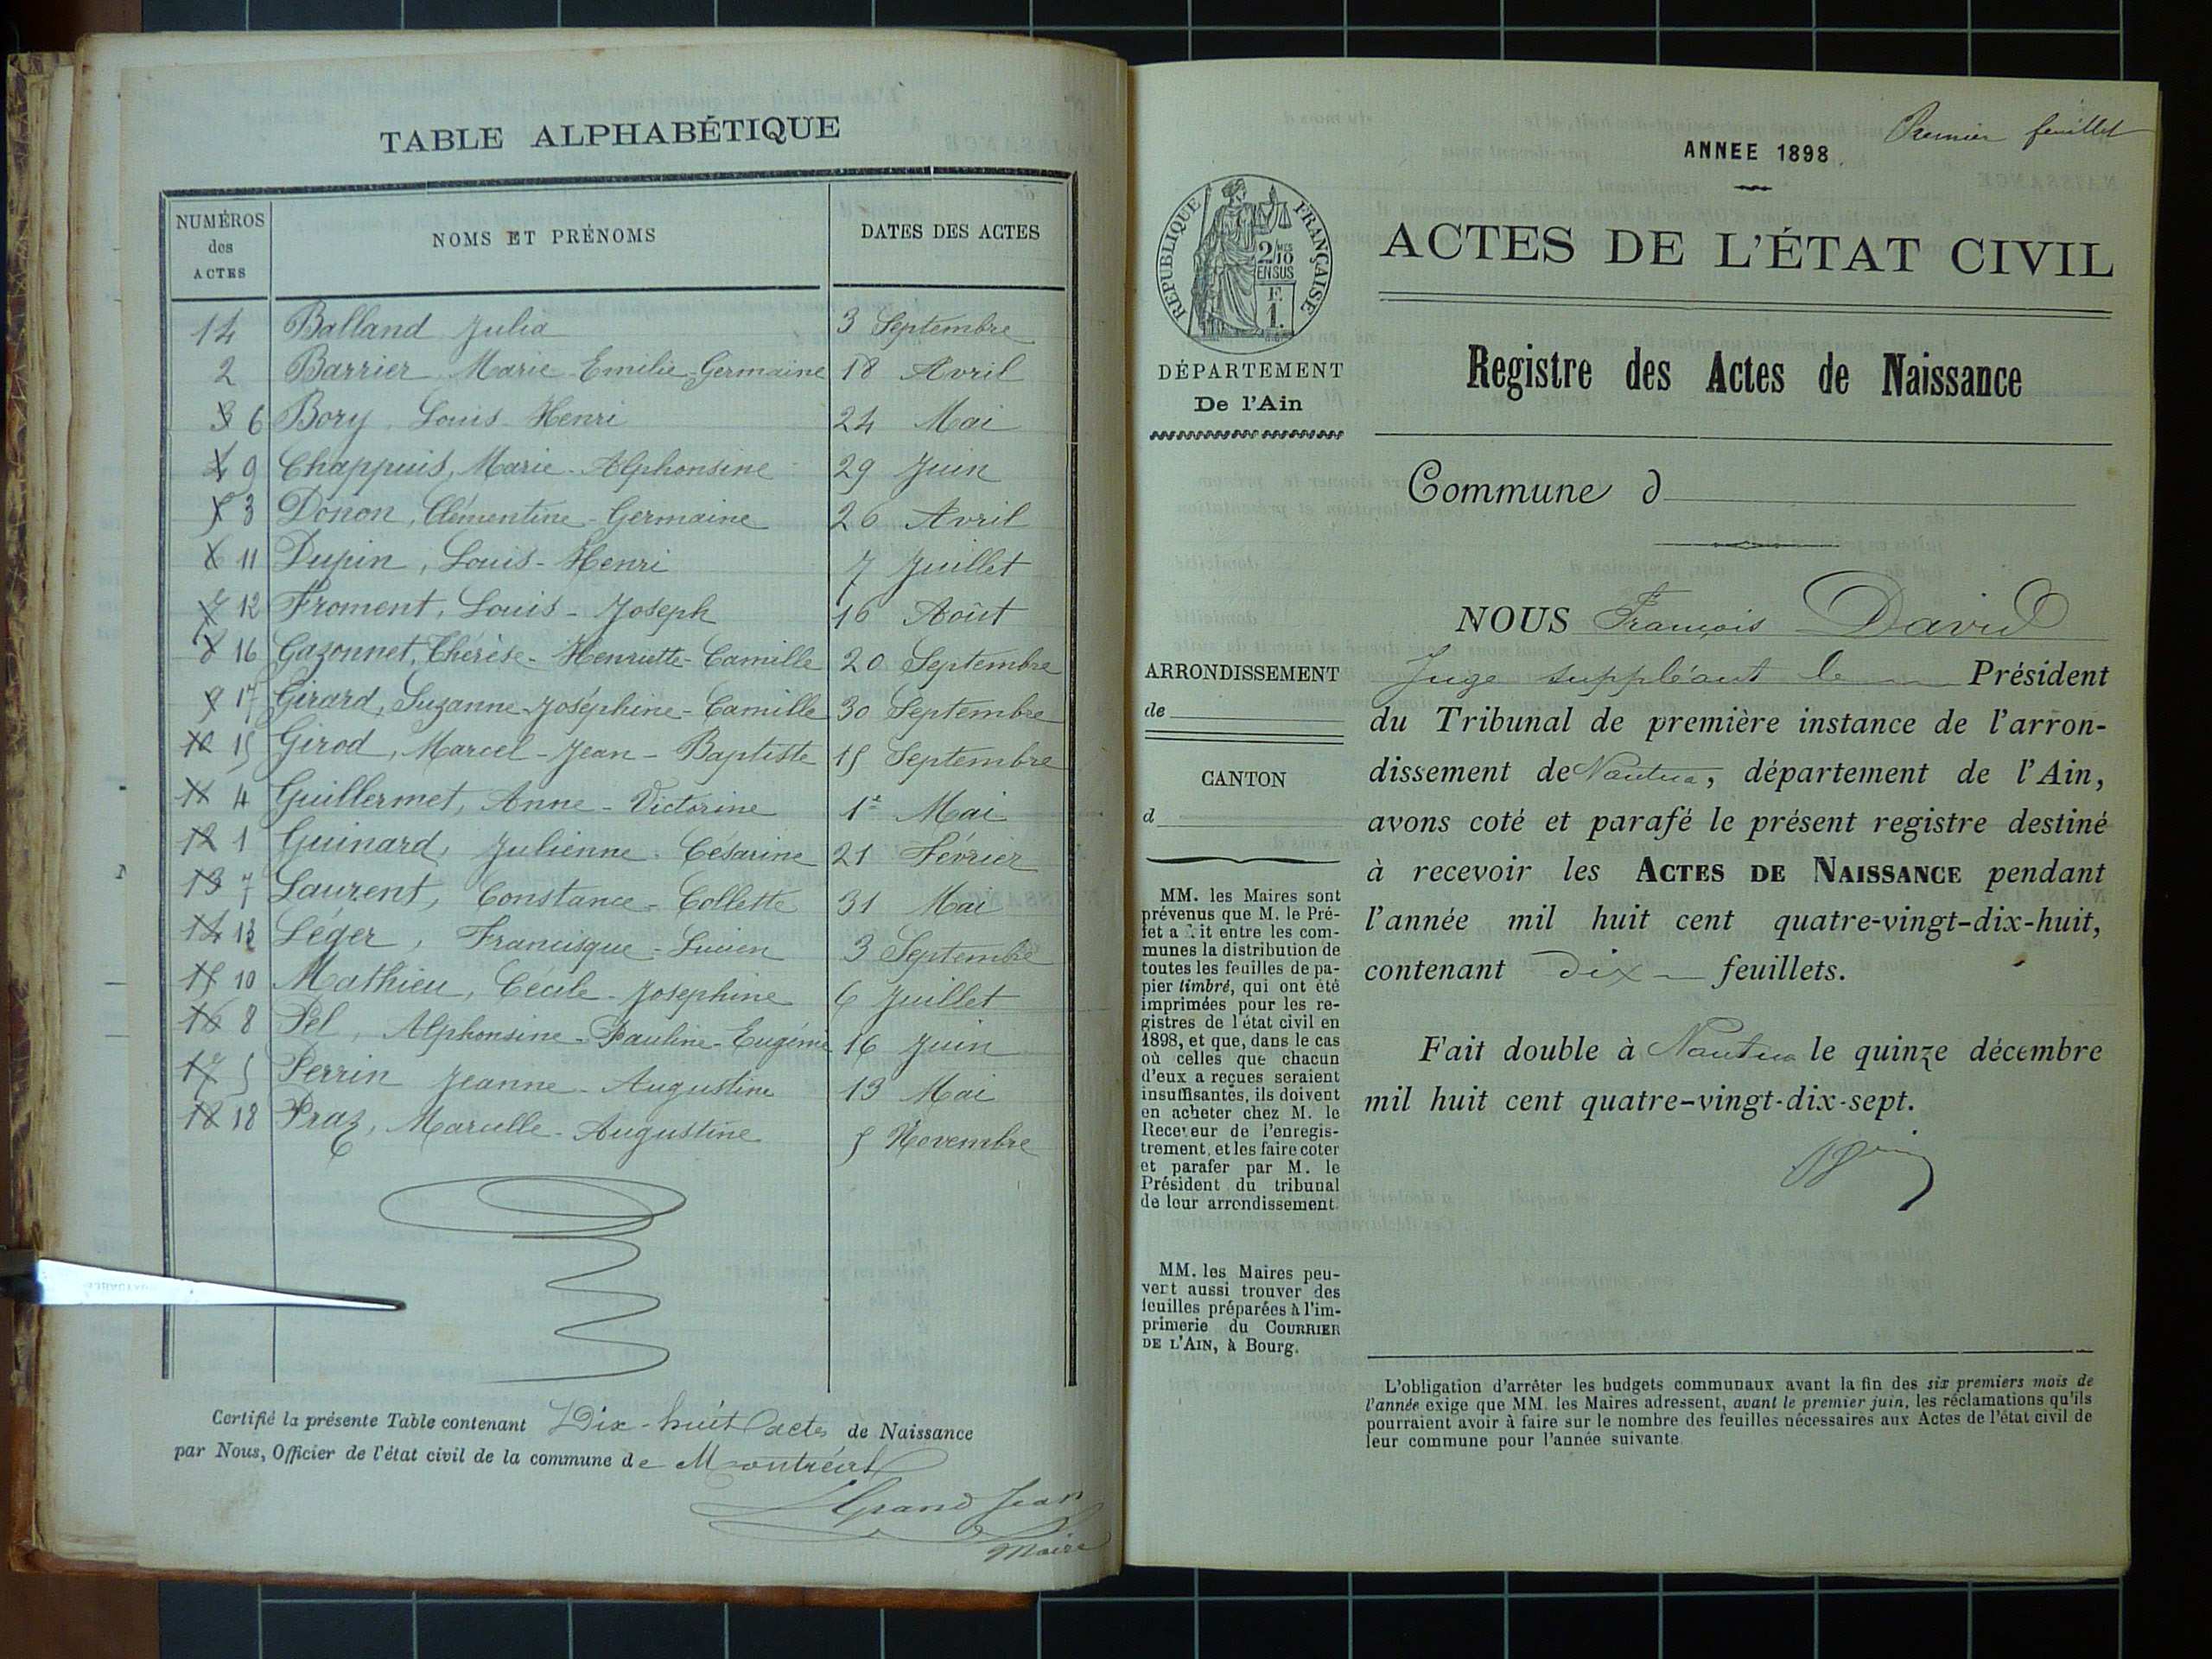 TABLE ALPHABÉTIQUE
NUMÉROS des ACTES | NOMS ET PRÉNOMS | DATES DES ACTES
14 Balland Julia 3 Septembre
2 Barrier Marie-Emilie-Germaine 18 Avril
3 6 Bory Louis-Henri 24 Mai
4 9 Chappuis, Marie-Alphonsine 29 Juin
5 3 Donon, Clémentine-Germaine 26 Avril
6 11 Dupin, Louis-Henri 7 Juillet
7 12 Froment, Louis-Joseph 16 Août
8 16 Gazonnet, Thérèse-Henriette-Camille 20 Septembre
9 17 Girard, Suzanne-Joséphine-Camille 30 Septembre
10 15 Girod, Marcel-Jean-Baptiste 15 Septembre
11 4 Guillermet, Anne-Victorine 1er Mai
12 1 Guinard, Julienne-Césarine 21 Février
13 7 Laurent, Constance-Collette 31 Mai
14 13 Léger, Francisque-Lucien 3 Septembre
15 10 Mathieu, Cécile-Joséphine 6 Juillet
16 8 Pel, Alphonsine-Pauline-Eugénie 16 Juin
17 5 Perrin Jeanne-Augustine 13 Mai
18 18 Praz, Marcelle-Augustine 5 Novembre
Certifié la présente Table contenant Dix-huit actes de Naissance
par Nous, Officier de l'état civil de la commune de Montréal
Grand Jean
Maire
Premier feuillet
ANNEE 1898.
RÉPUBLIQUE FRANÇAISE
2/10 MES
EN SUS
F.
1.
ACTES DE L'ÉTAT CIVIL
DÉPARTEMENT
De l'Ain
Registre des Actes de Naissance
Commune d
NOUS François David
Juge suppléant le Président
du Tribunal de première instance de l'arron-
dissement de Nantua, département de l'Ain,
avons coté et parafé le présent registre destiné
à recevoir les ACTES DE NAISSANCE pendant
l'année mil huit cent quatre-vingt-dix-huit,
contenant dix feuillets.
Fait double à Nantua le quinze décembre
mil huit cent quatre-vingt-dix-sept.
ARRONDISSEMENT
de
CANTON
d
MM. les Maires sont
prévenus que M. le Pré-
fet a fait entre les com-
munes la distribution de
toutes les feuilles de pa-
pier timbré, qui ont été
imprimées pour les re-
gistres de l'état civil en
1898, et que, dans le cas
où celles que chacun
d'eux a reçues seraient
insuffisantes, ils doivent
en acheter chez M. le
Receveur de l'enregis-
trement, et les faire coter
et parafer par M. le
Président du tribunal
de leur arrondissement.
MM. les Maires peu-
vent aussi trouver des
feuilles préparées à l'im-
primerie du COURRIER
DE L'AIN, à Bourg.
L'obligation d'arrêter les budgets communaux avant la fin des six premiers mois de
l'année exige que MM. les Maires adressent, avant le premier juin, les réclamations qu'ils
pourraient avoir à faire sur le nombre des feuilles nécessaires aux Actes de l'état civil de
leur commune pour l'année suivante.